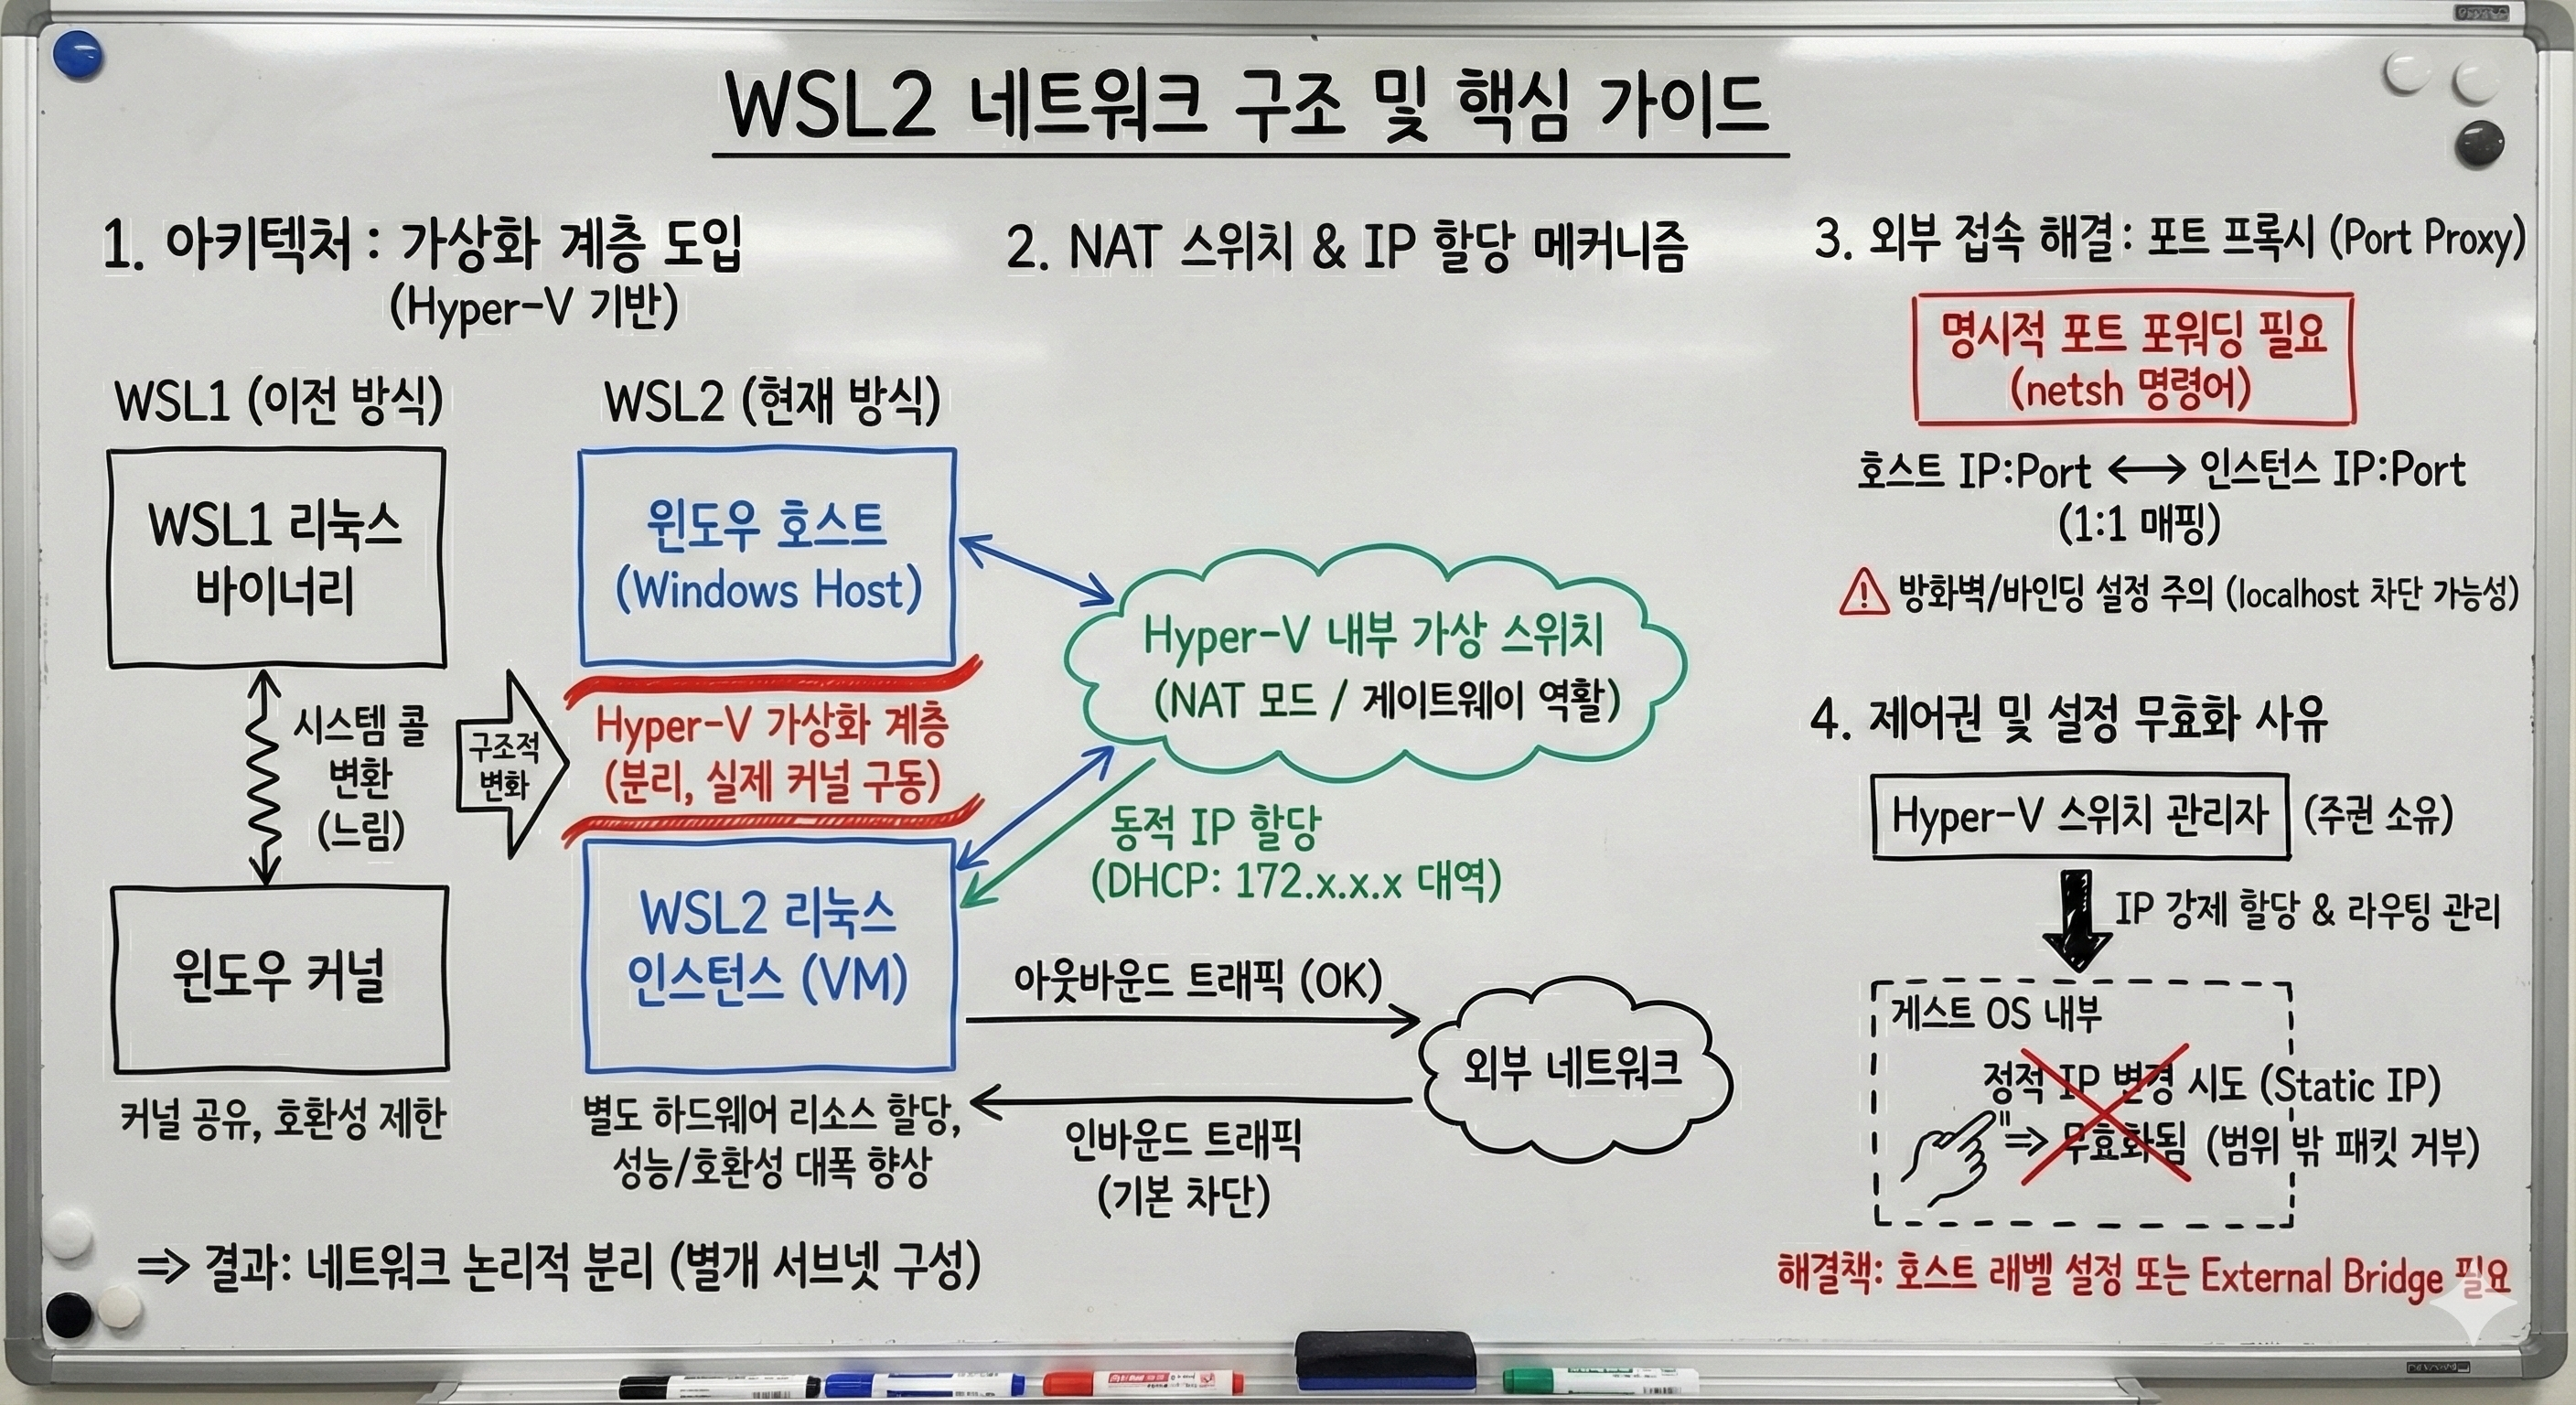 WSL2 네트워크 구조 및 핵심 가이드
1. 아키텍처 : 가상화 계층 도입
(Hyper-V 기반)
WSL1 (이전 방식)
WSL1 리눅스
바이너리
시스템 콜
변환
(느림)
윈도우 커널
커널 공유, 호환성 제한
구조적
변화
WSL2 (현재 방식)
윈도우 호스트
(Windows Host)
Hyper-V 가상화 계층
(분리, 실제 커널 구동)
WSL2 리눅스
인스턴스 (VM)
별도 하드웨어 리소스 할당,
성능/호환성 대폭 향상
⇒ 결과: 네트워크 논리적 분리 (별개 서브넷 구성)
2. NAT 스위치 & IP 할당 메커니즘
Hyper-V 내부 가상 스위치
(NAT 모드 / 게이트웨이 역활)
동적 IP 할당
(DHCP: 172.x.x.x 대역)
아웃바운드 트래픽 (OK)
외부 네트워크
인바운드 트래픽
(기본 차단)
3. 외부 접속 해결 : 포트 프록시 (Port Proxy)
명시적 포트 포워딩 필요
(netsh 명령어)
호스트 IP:Port ↔ 인스턴스 IP:Port
(1:1 매핑)
방화벽/바인딩 설정 주의 (localhost 차단 가능성)
4. 제어권 및 설정 무효화 사유
Hyper-V 스위치 관리자 (주권 소유)
IP 강제 할당 & 라우팅 관리
게스트 OS 내부
정적 IP 변경 시도 (Static IP)
⇒ 무효화됨 (범위 밖 패킷 거부)
해결책: 호스트 래벨 설정 또는 External Bridge 필요